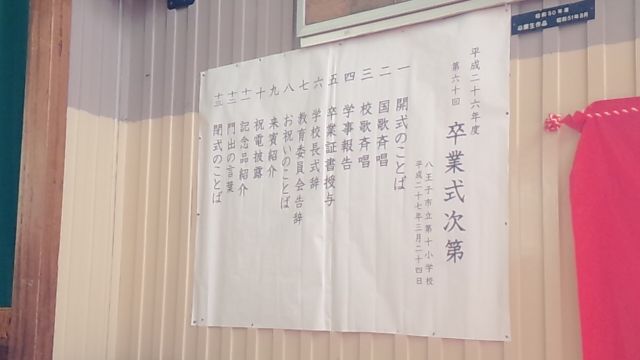 平成二十六年度
第六十回 卒業式次第
八王子市立第十小学校
平成二十七年三月二十四日
一 開式のことば
二 国歌斉唱
三 校歌斉唱
四 学事報告
五 卒業証書授与
六 学校長式辞
七 教育委員会告辞
八 お祝いのことば
九 来賓紹介
十 祝電披露
十一 記念品紹介
十二 門出の言葉
十三 閉式のことば
昭和50年度
卒業生作品 昭和51年3月